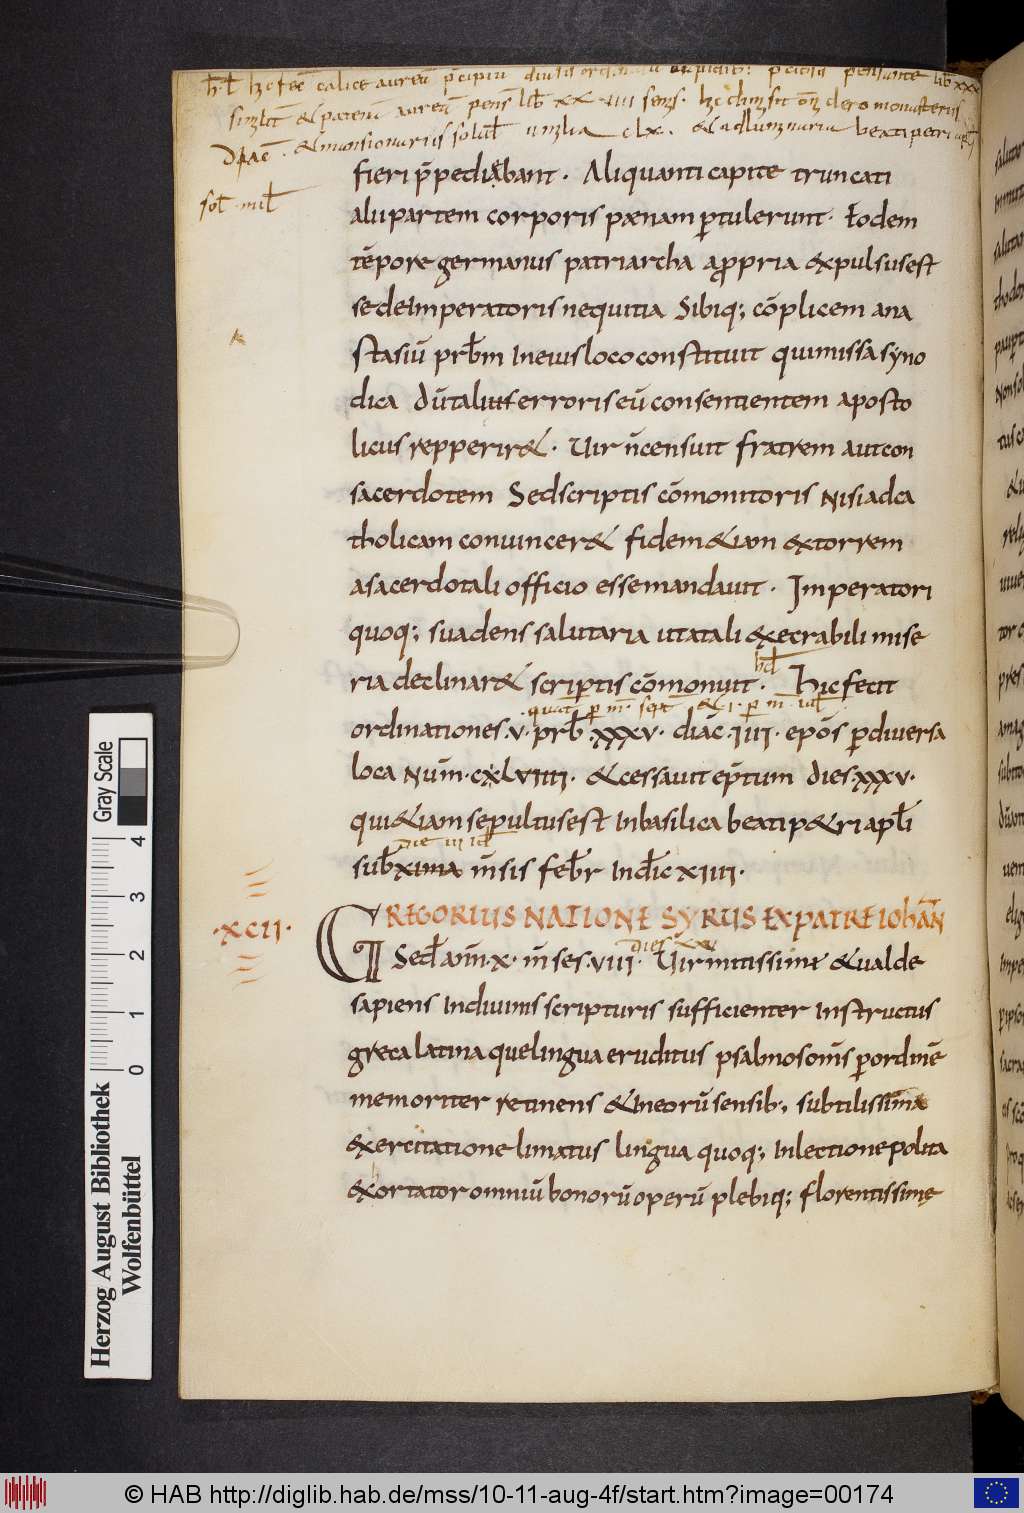 h̄.l̄ hic feč calice aureū p̄cipiū diūsis ornatū lapidib; p̄ciosis pensante lib̄ xxx
similit̄ & patenā aureā pens̄ lib̄ xx viiii semis. hic dimisit om̄ clero monasteriis
diaconiae. & mansionariis solid̄ ii milia clx. & ad luminaria beati petri apl̄i
sol̄ mil̄
fieri p̄pediebant. Aliquanti capite truncati
alii partem corporis pænam ꝑtulerunt. Eodem
tēpore germanus patriarcha a ꝓpria expulsus est
sede imperatoris nequitia Sibiq; cōplicem ana
stasiū prb̄m In eius loco constituit qui missa syno
dica Dū talius erroris eū consentientem aposto
licus repperir&. Uir n̄ censuit fratrem aut con
sacerdotem Sed scriptis cōmonitoris Nisi ad ca
tholicam conuincer& fidem &iam extorrem
a sacerdotali officio esse mandauit. Imperatori
quoq; suadens salutaria ut a tali execrabili mise
ria declinar& scriptis cōmonuit. Hic fecit
quat̄ ꝑ m̄. sept̄ & i. ꝑ m̄ iul̄
ordinationes .v. prb̄ .xxxv. diac̄ .iiii. ep̄os ꝑ diuersa
loca Num̄. cxlviiii. & cessauit ep̄tum dies .xxxv.
qui &iam sepultus est In basilica beati p&ri apl̄i
die iii id̄
sub xima m̄sis feb̄r Indic̄ xiiii.
.XCII. GREGORIUS NATIONE SYRUS EX PATRE IOhAN̄
dies xxiiii
Sed̄ ann̄. x. m̄ses .viii. Uir mitissime & ualde
sapiens In diuinis scripturis sufficienter Instructus
greca latina que lingua eruditus psalmos om̄s ꝑ ordinē
memoriter retinens & In eorū sensib; subtilissima
exercitatione limatus lingua quoq; In lectione polita
exortator omniū bonorū operū plebiq; florentissime
Herzog August Bibliothek
Wolfenbüttel
0 1 2 3 4
Gray Scale
© HAB http://diglib.hab.de/mss/10-11-aug-4f/start.htm?image=00174